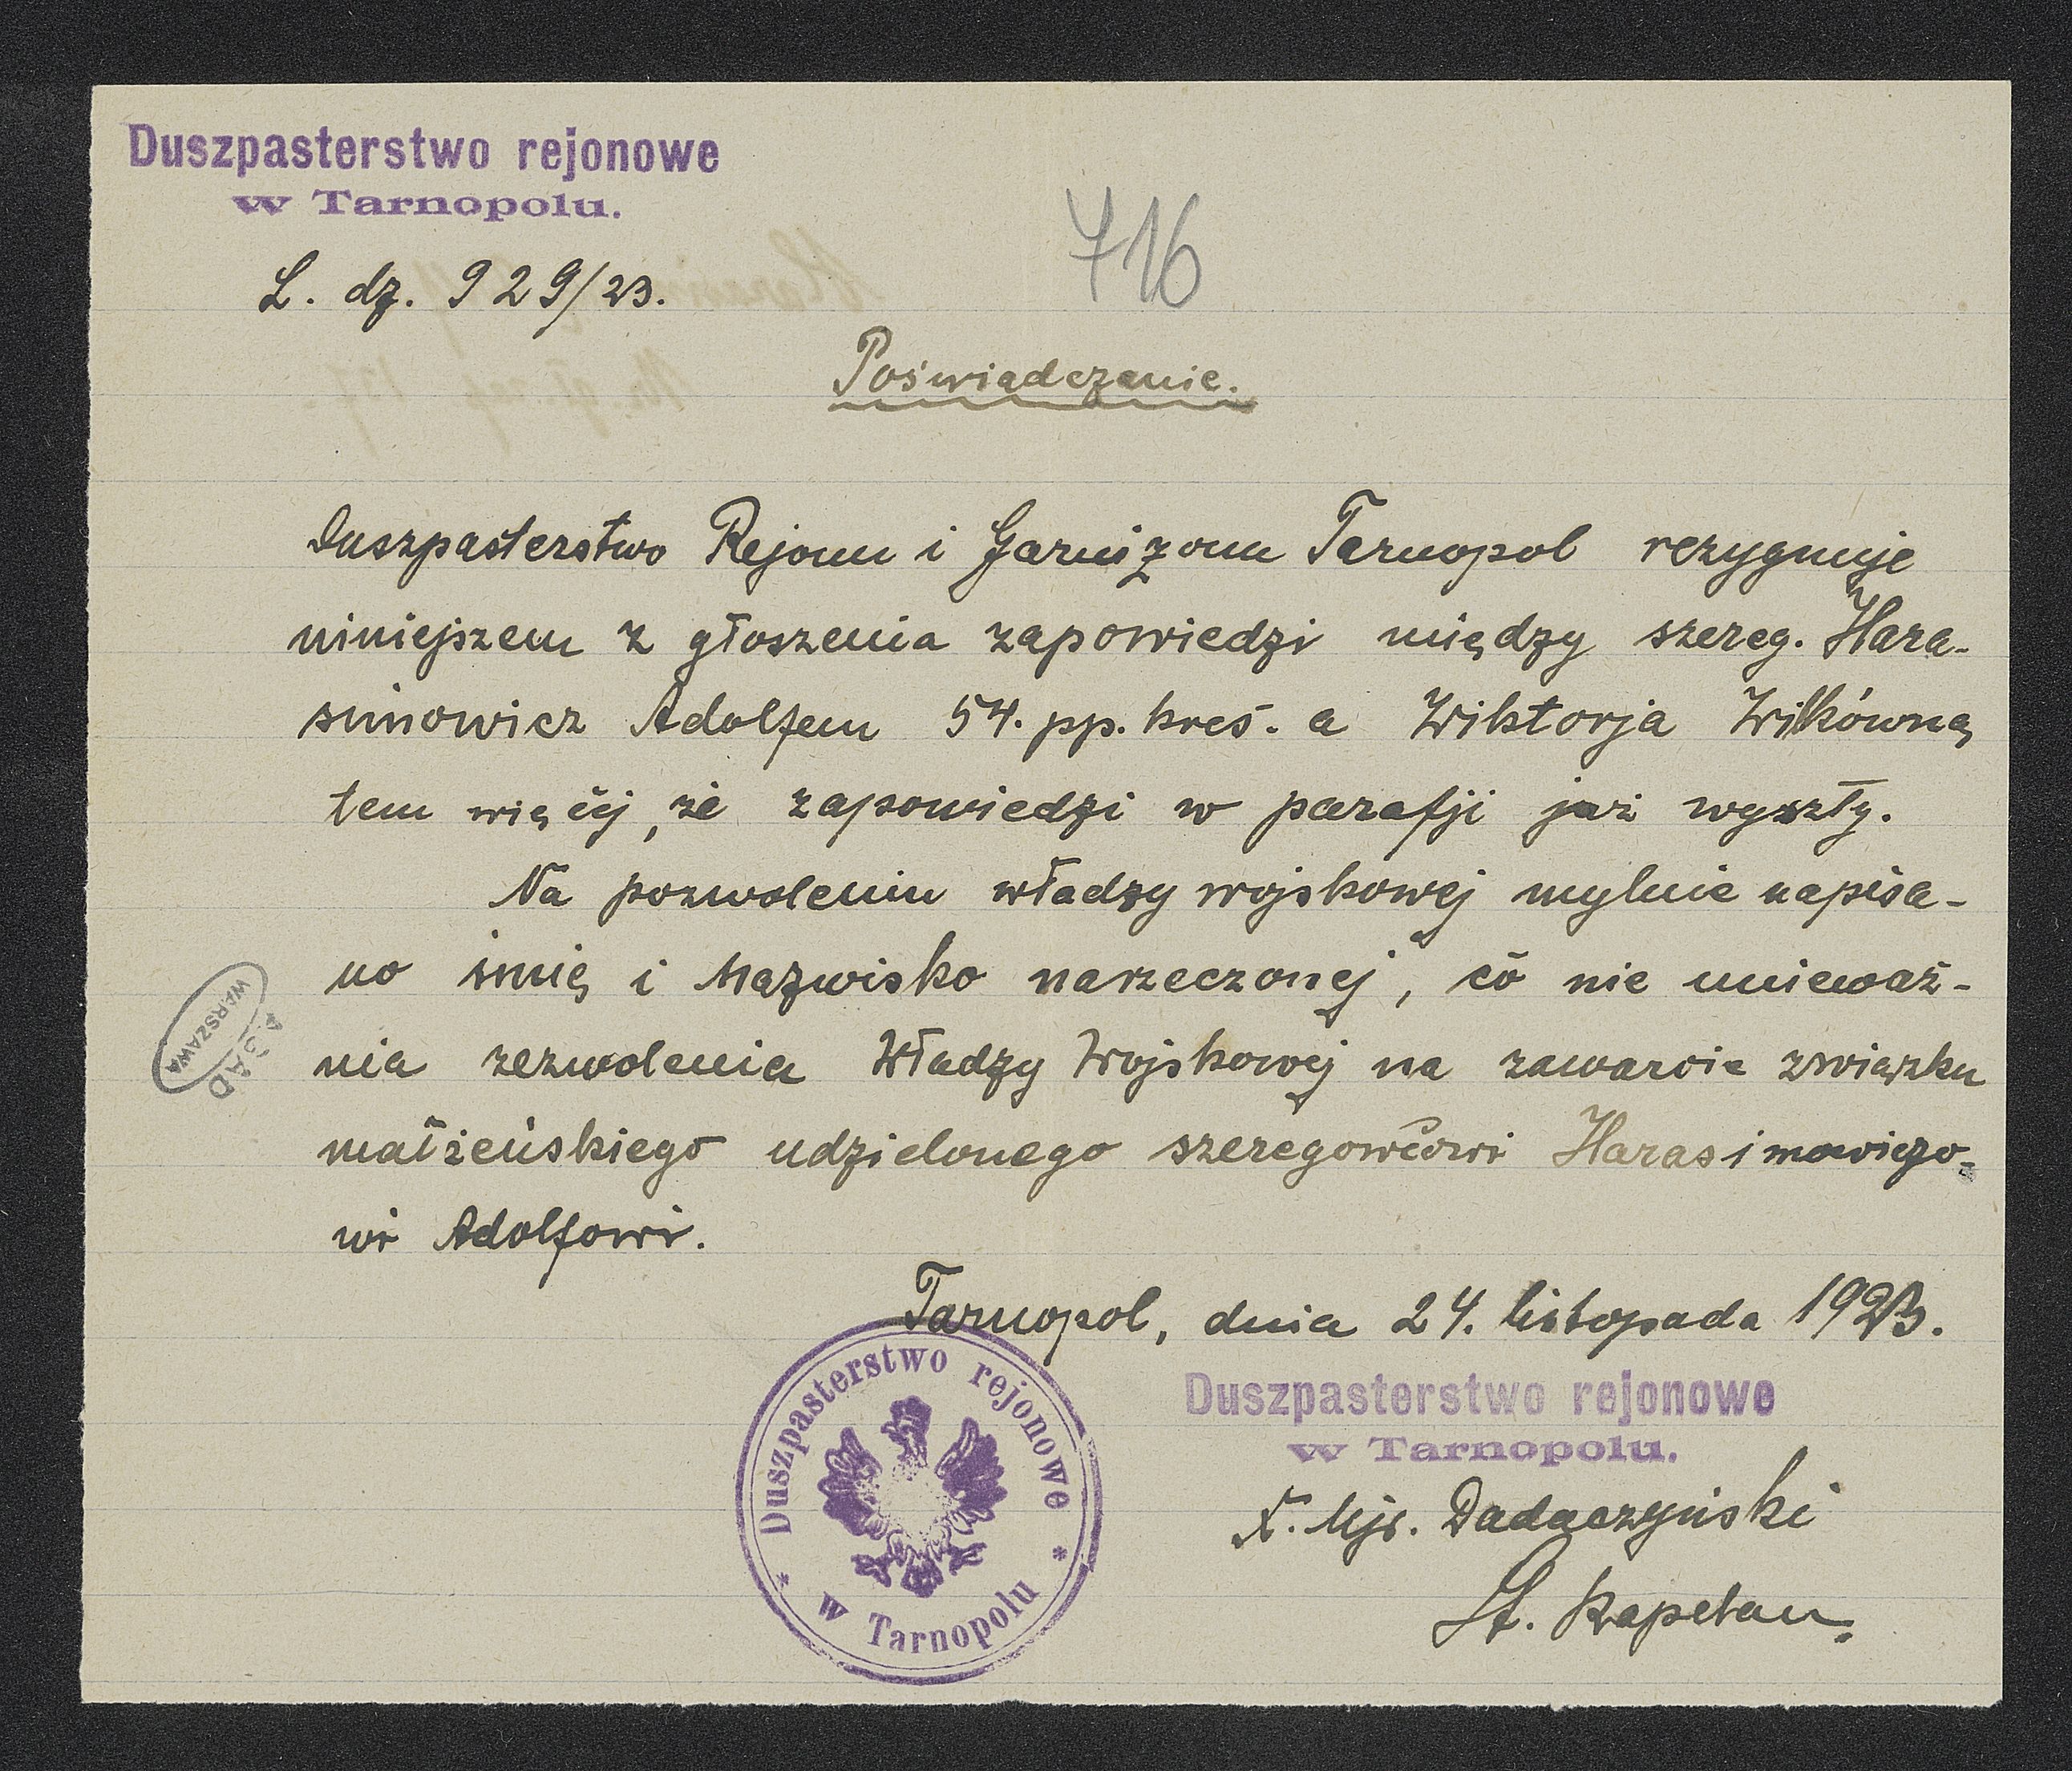 Duszpasterstwo rejonowe
w Tarnopolu.
L. dz. 929/23.
716
Poświadczenie.
Duszpasterstwo Rejonu i Garnizonu Tarnopol rezygnuje
niniejszem z głoszenia zapowiedzi między szereg. Hara-
simowicz Adolfem 54. pp. kreś. a Wiktorja Wilkówną
tem więcej, że zapowiedzi w parafji już wyszły.
Na pozwoleniu władzy wojskowej mylnie napisa-
no imię i Nazwisko narzeczonej, co nie unieważ-
nia zezwolenia Władzy Wojskowej na zawarcie związku
małżeńskiego udzielonego szeregowcowi Harasimowiczo-
wi Adolfowi.
Tarnopol, dnia 24. listopada 1923.
Duszpasterstwo rejonowe
w Tarnopolu.
X. Mjr. Dadaczyński
St. Kapelan.
Duszpasterstwo rejonowe
* w Tarnopolu *
AGAD
WARSZAWA